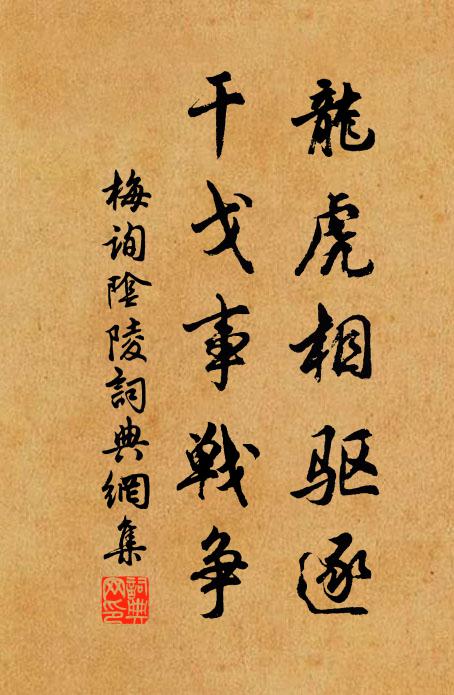 龍虎相驱逐
干戈事戦争
梅询陰陵詞典網集
詞典网印